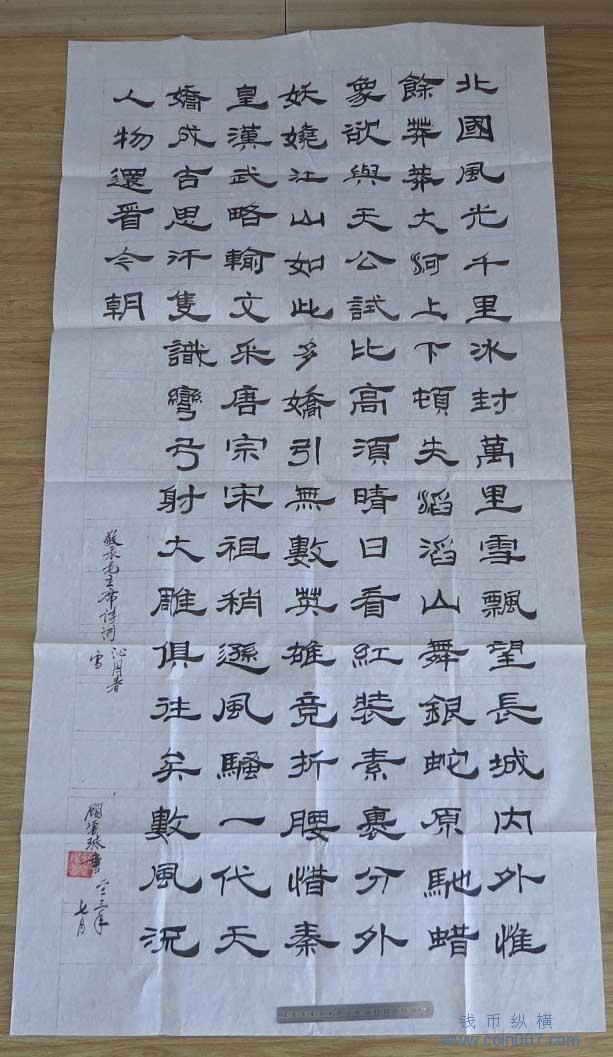 北國風光千里冰封萬里雪飄望長城内外惟
餘莽莽大河上下頓失滔滔山舞銀蛇原馳蜡
象欲與天公試比高須晴日看紅装素裹分外
妖嬈江山如此多嬌引無數英雄竟折腰惜秦
皇漢武略輸文采唐宗宋祖稍遜風騷一代天
嬌成吉思汗隻識彎弓射大雕俱往矣數風況
人物還看今朝
敬录毛主席诗词 沁园春
雪
書 三年
七月
钱币纵横
www.coin007.com